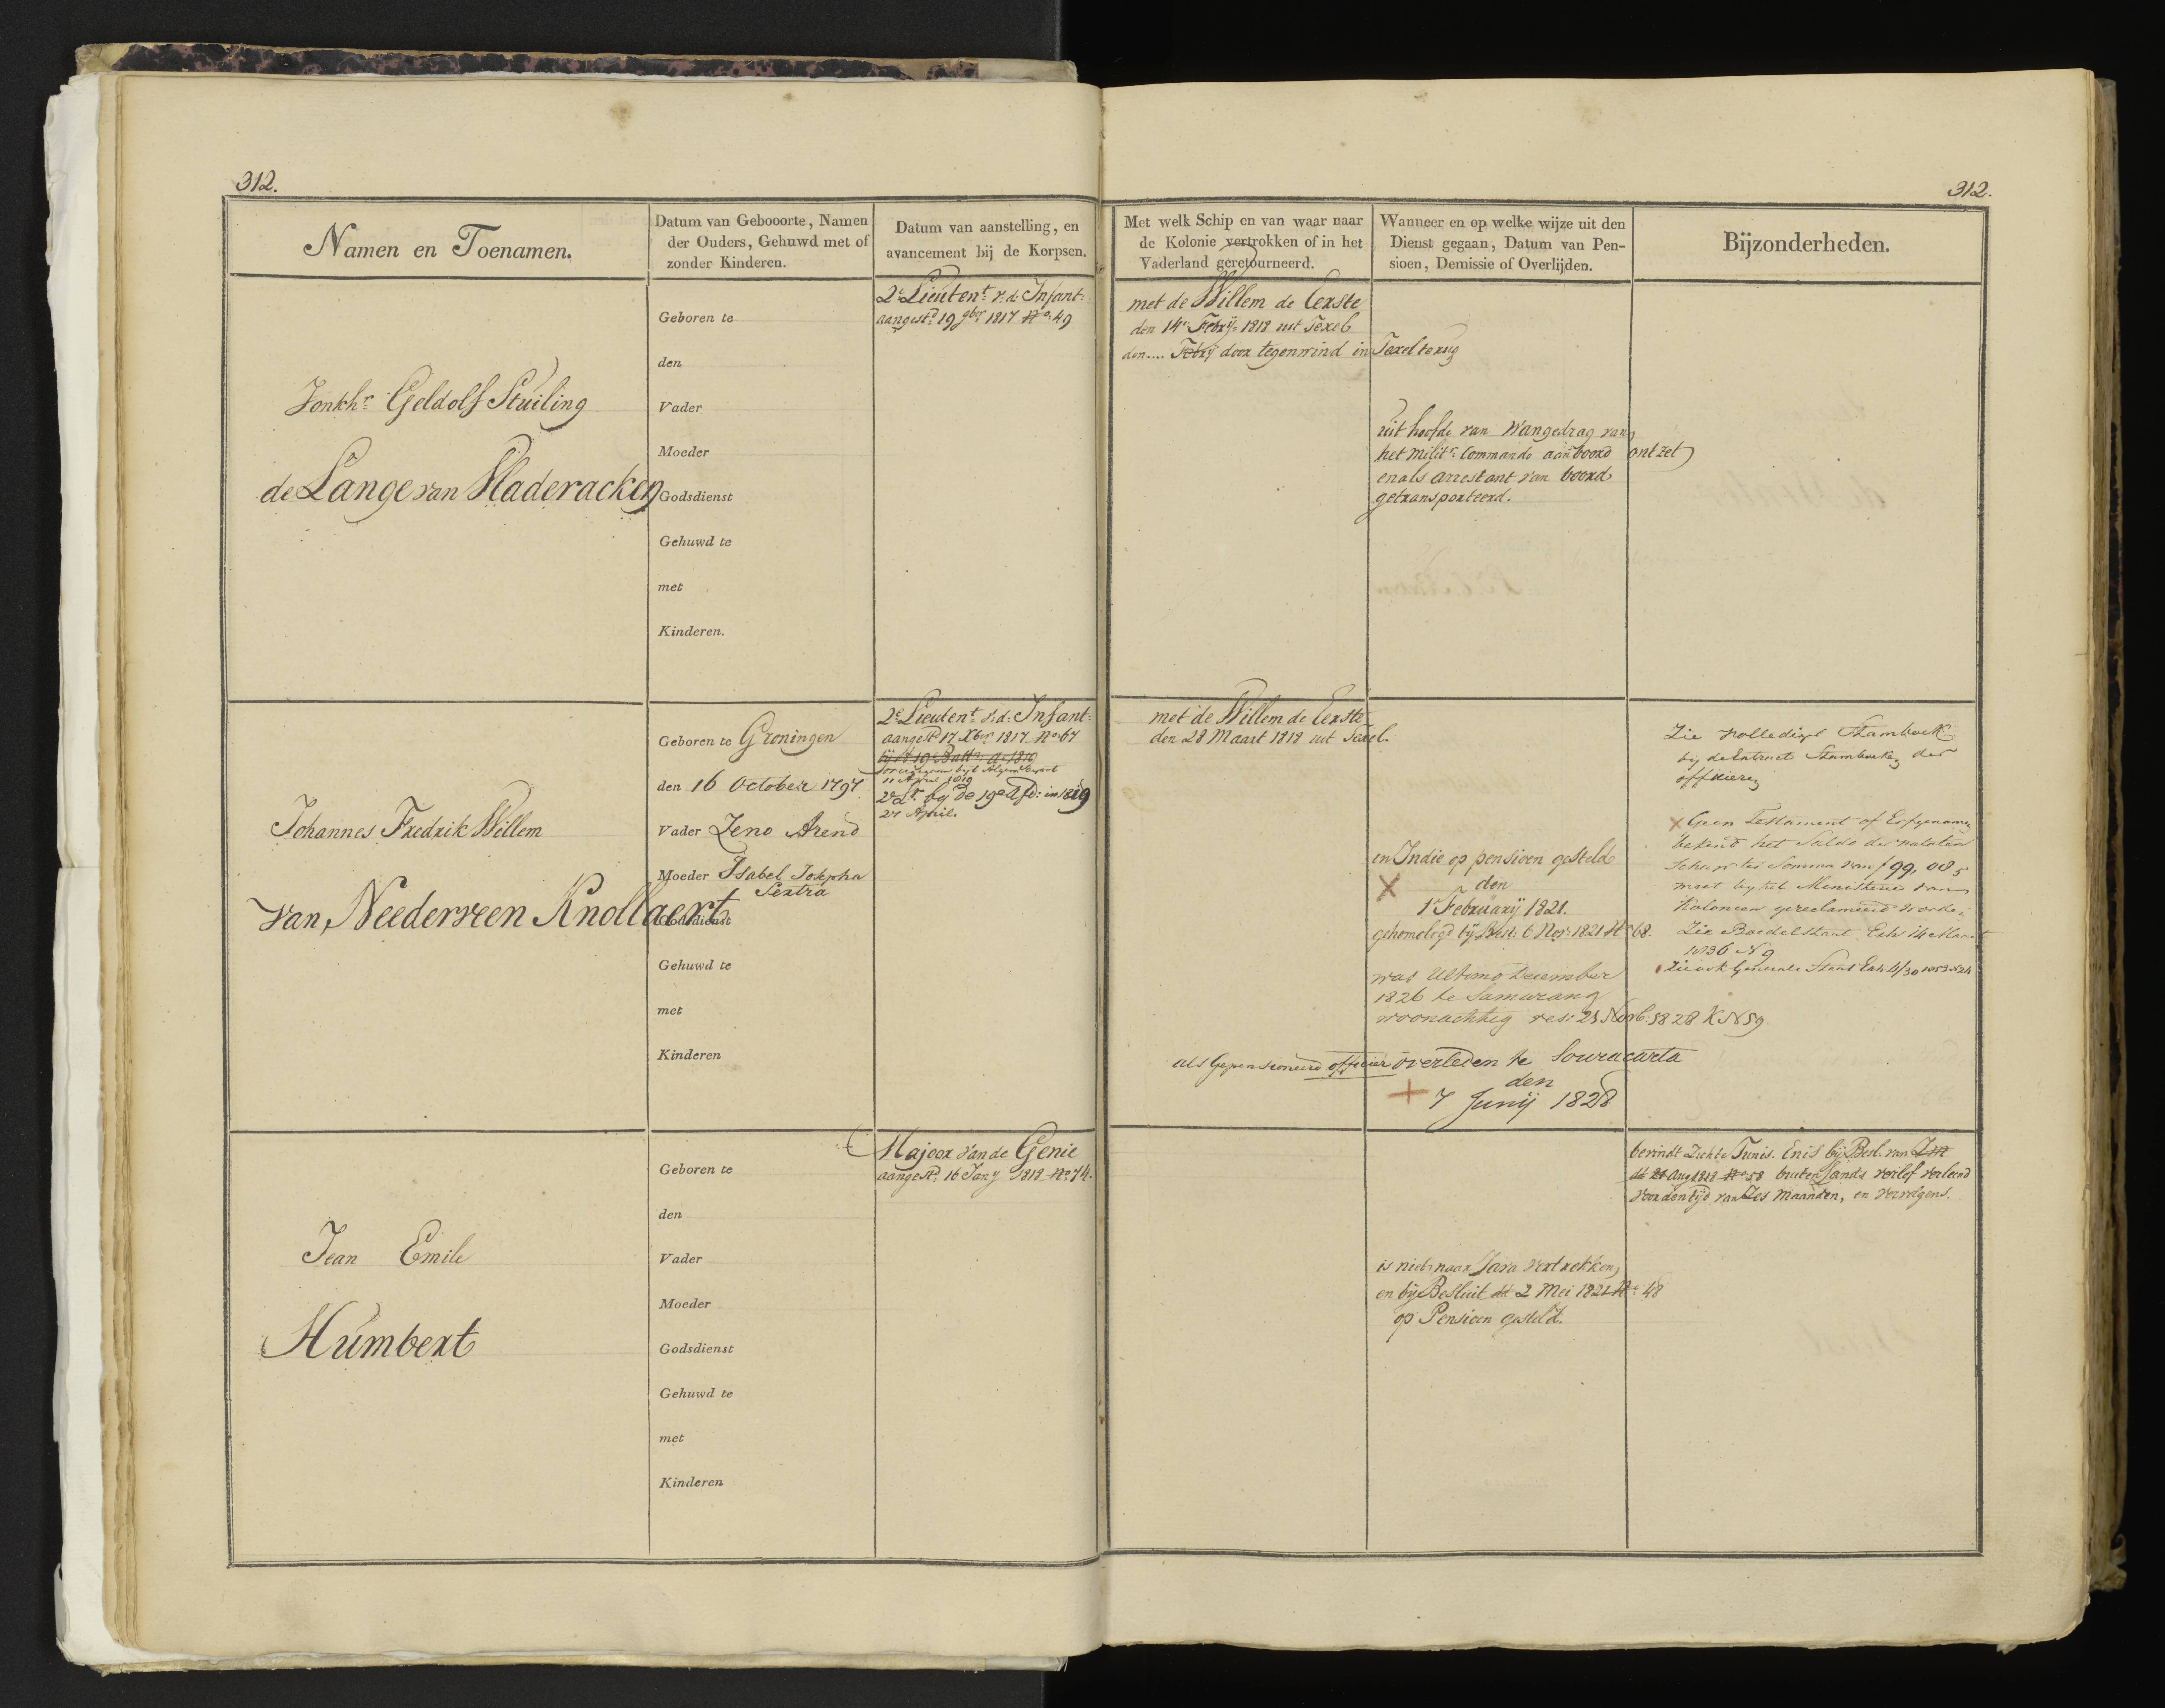 312.
312.
Namen en Toenamen.
Datum van Gebooorte, Namen
der Ouders, Gehuwd met of
zonder Kinderen.
Datum van aanstelling, en
avancement bij de Korpsen.
Met welk Schip en van waar naar
de Kolonie vertrokken of in het
Vaderland geretourneerd.
Wanneer en op welke wijze uit den
Dienst gegaan, Datum van Pen-
sioen, Demissie of Overlijden.
Bijzonderheden.
Jonkhr. Geldolf Stuiling
de Lange van Wladeracken
Geboren te
den
Vader
Moeder
Godsdienst
Gehuwd te
met
Kinderen.
2e Lieutent. v. d. Infant:
aangestd. 19 9ber 1817 No. 49
met de Willem de Eerste
den 14e Febrij 1818 uit Texel
den.... Febrij door tegenwind in Texel terug
uit hoofde van Wangedrag van
het milit. Commando aan boord ontzet
en als arrestant van boord
getransporteerd.
Johannes Fredrik Willem
Van Neederveen Knollaert
Geboren te Groningen
den 16 October 1797
Vader Zeno Arend
Moeder Isabel Josepha
Sextra
Godsdienst
Gehuwd te
met
Kinderen
2e Lieutent. v. d. Infant:
aangestd 17 Xber 1817 No. 67
bij het 19e Battn. a 1819
11 April 1819
2e Lt. bij de 19e Afd: in 1819
27 April.
met de Willem de Eerste
den 28 Maart 1818 uit Texel.
in Indie op pensioen gesteld
den
1e Februarij 1821.
gehomologd bij Best: 6 Nov: 1821 No 68.
was Ultimo December
1826 te Samarang
woonachtig res: 25 Novb: 1828 K N 59
als Gepensioneerd officier overleden te Souracarta
den
7 Junij 1828
Zie volledige Stamboek
bij de Extract Stamboeken der
officieren
Geen Testament of Erfgenamen
bekend het Saldo der nalaten
schap ter Somma van f 99,08 5
moet bij het Ministerie van
Kolonien gereclameerd worden
Zie Boedelstaat Exh 14 Maart
1836 N 9
Zie ook Generale Staat Exh 4/30 1853 N 24
Jean Emile
Humbert
Geboren te
den
Vader
Moeder
Godsdienst
Gehuwd te
met
Kinderen
Majoor van de Genie
aangestd. 16 Janij 1818 No. 74.
is niet naar Java vertrokken
en bij Besluit dd 2 Mei 1821 No. 48
op Pensioen gesteld.
bevindt Zich te Tunis. En is bij Besl. van ZM
dd 21 Aug 1818 No 58 buiten Lands verlof verleend
voor den tijd van Zes Maanden, en vervolgens.